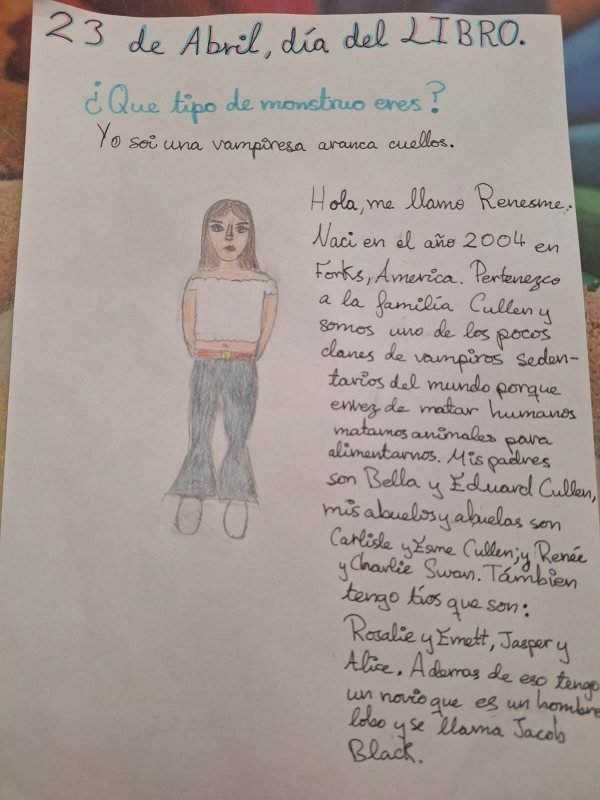 23 de Abril, día del LIBRO.
¿Que tipo de monstruo eres?
Yo soi una vampiresa aranca cuellos.
Hola, me llamo Renesme.
Naci en el año 2004 en
Forks, America. Pertenezco
a la familía Cullen y
somos uno de los pocos
clanes de vampiros seden-
tarios del mundo porque
envez de matar humanos
matamos animales para
alimentarnos. Mis padres
son Bella y Eduard Cullen,
mis abuelos y abuelas son
Carlisle y Esme Cullen; y Renée
y Charlie Swan. Támbien
tengo tíos que son:
Rosalie y Emett, Jasper y
Alice. Ademas de eso tengo
un novio que es un hombre
lobo y se llama Jacob
Black.